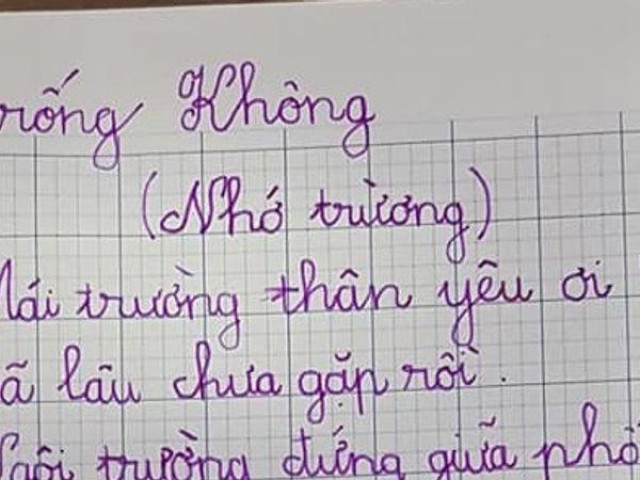 rống Không
(Nhớ trường)
Mái trường thân yêu ơi
ã lâu chưa gặp rồi.
Ngôi trường đứng giữa phố